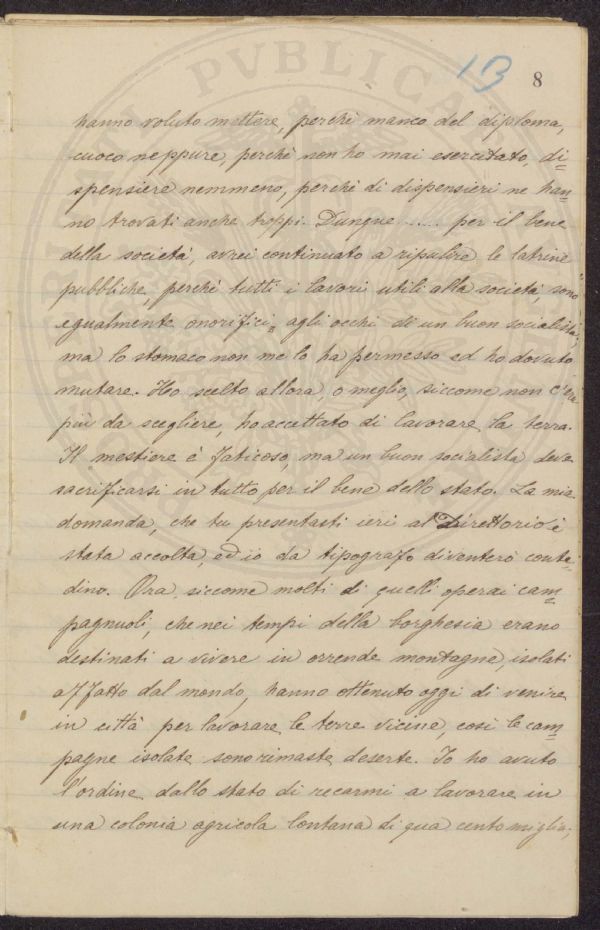 13 8
hanno voluto mettere, perchè manco del diploma,
cuoco neppure, perchè non ho mai esercitato, di=
spensiere nemmeno, perchè di dispensieri ne han=
no trovati anche troppi. Dunque ..... per il bene
della società, avrei continuato a ripulire le latrine
pubbliche, perchè tutti i lavori utili alla società, sono
egualmente onorifici agli occhi di un buon socialista;
ma lo stomaco non me lo ha permesso ed ho dovuto
mutare. Ho scelto allora, o meglio, siccome non c'era
più da scegliere, ho accettato di lavorare la terra.
Il mestiere è faticoso, ma un buon socialista deve
sacrificarsi in tutto per il bene dello stato. La mia
domanda, che tu presentasti ieri al Direttorio è
stata accolta, ed io da tipografo diventerò conta=
dino. Ora, siccome molti di quelli operai cam=
pagnuoli, che nei tempi della borghesia erano
destinati a vivere in orrende montagne, isolati
affatto dal mondo, hanno ottenuto oggi di venire
in città per lavorare le terre vicine, così le cam=
pagne isolate sono rimaste deserte. Io ho avuto
l'ordine dallo stato di recarmi a lavorare in
una colonia agricola lontana di qua cento miglia;